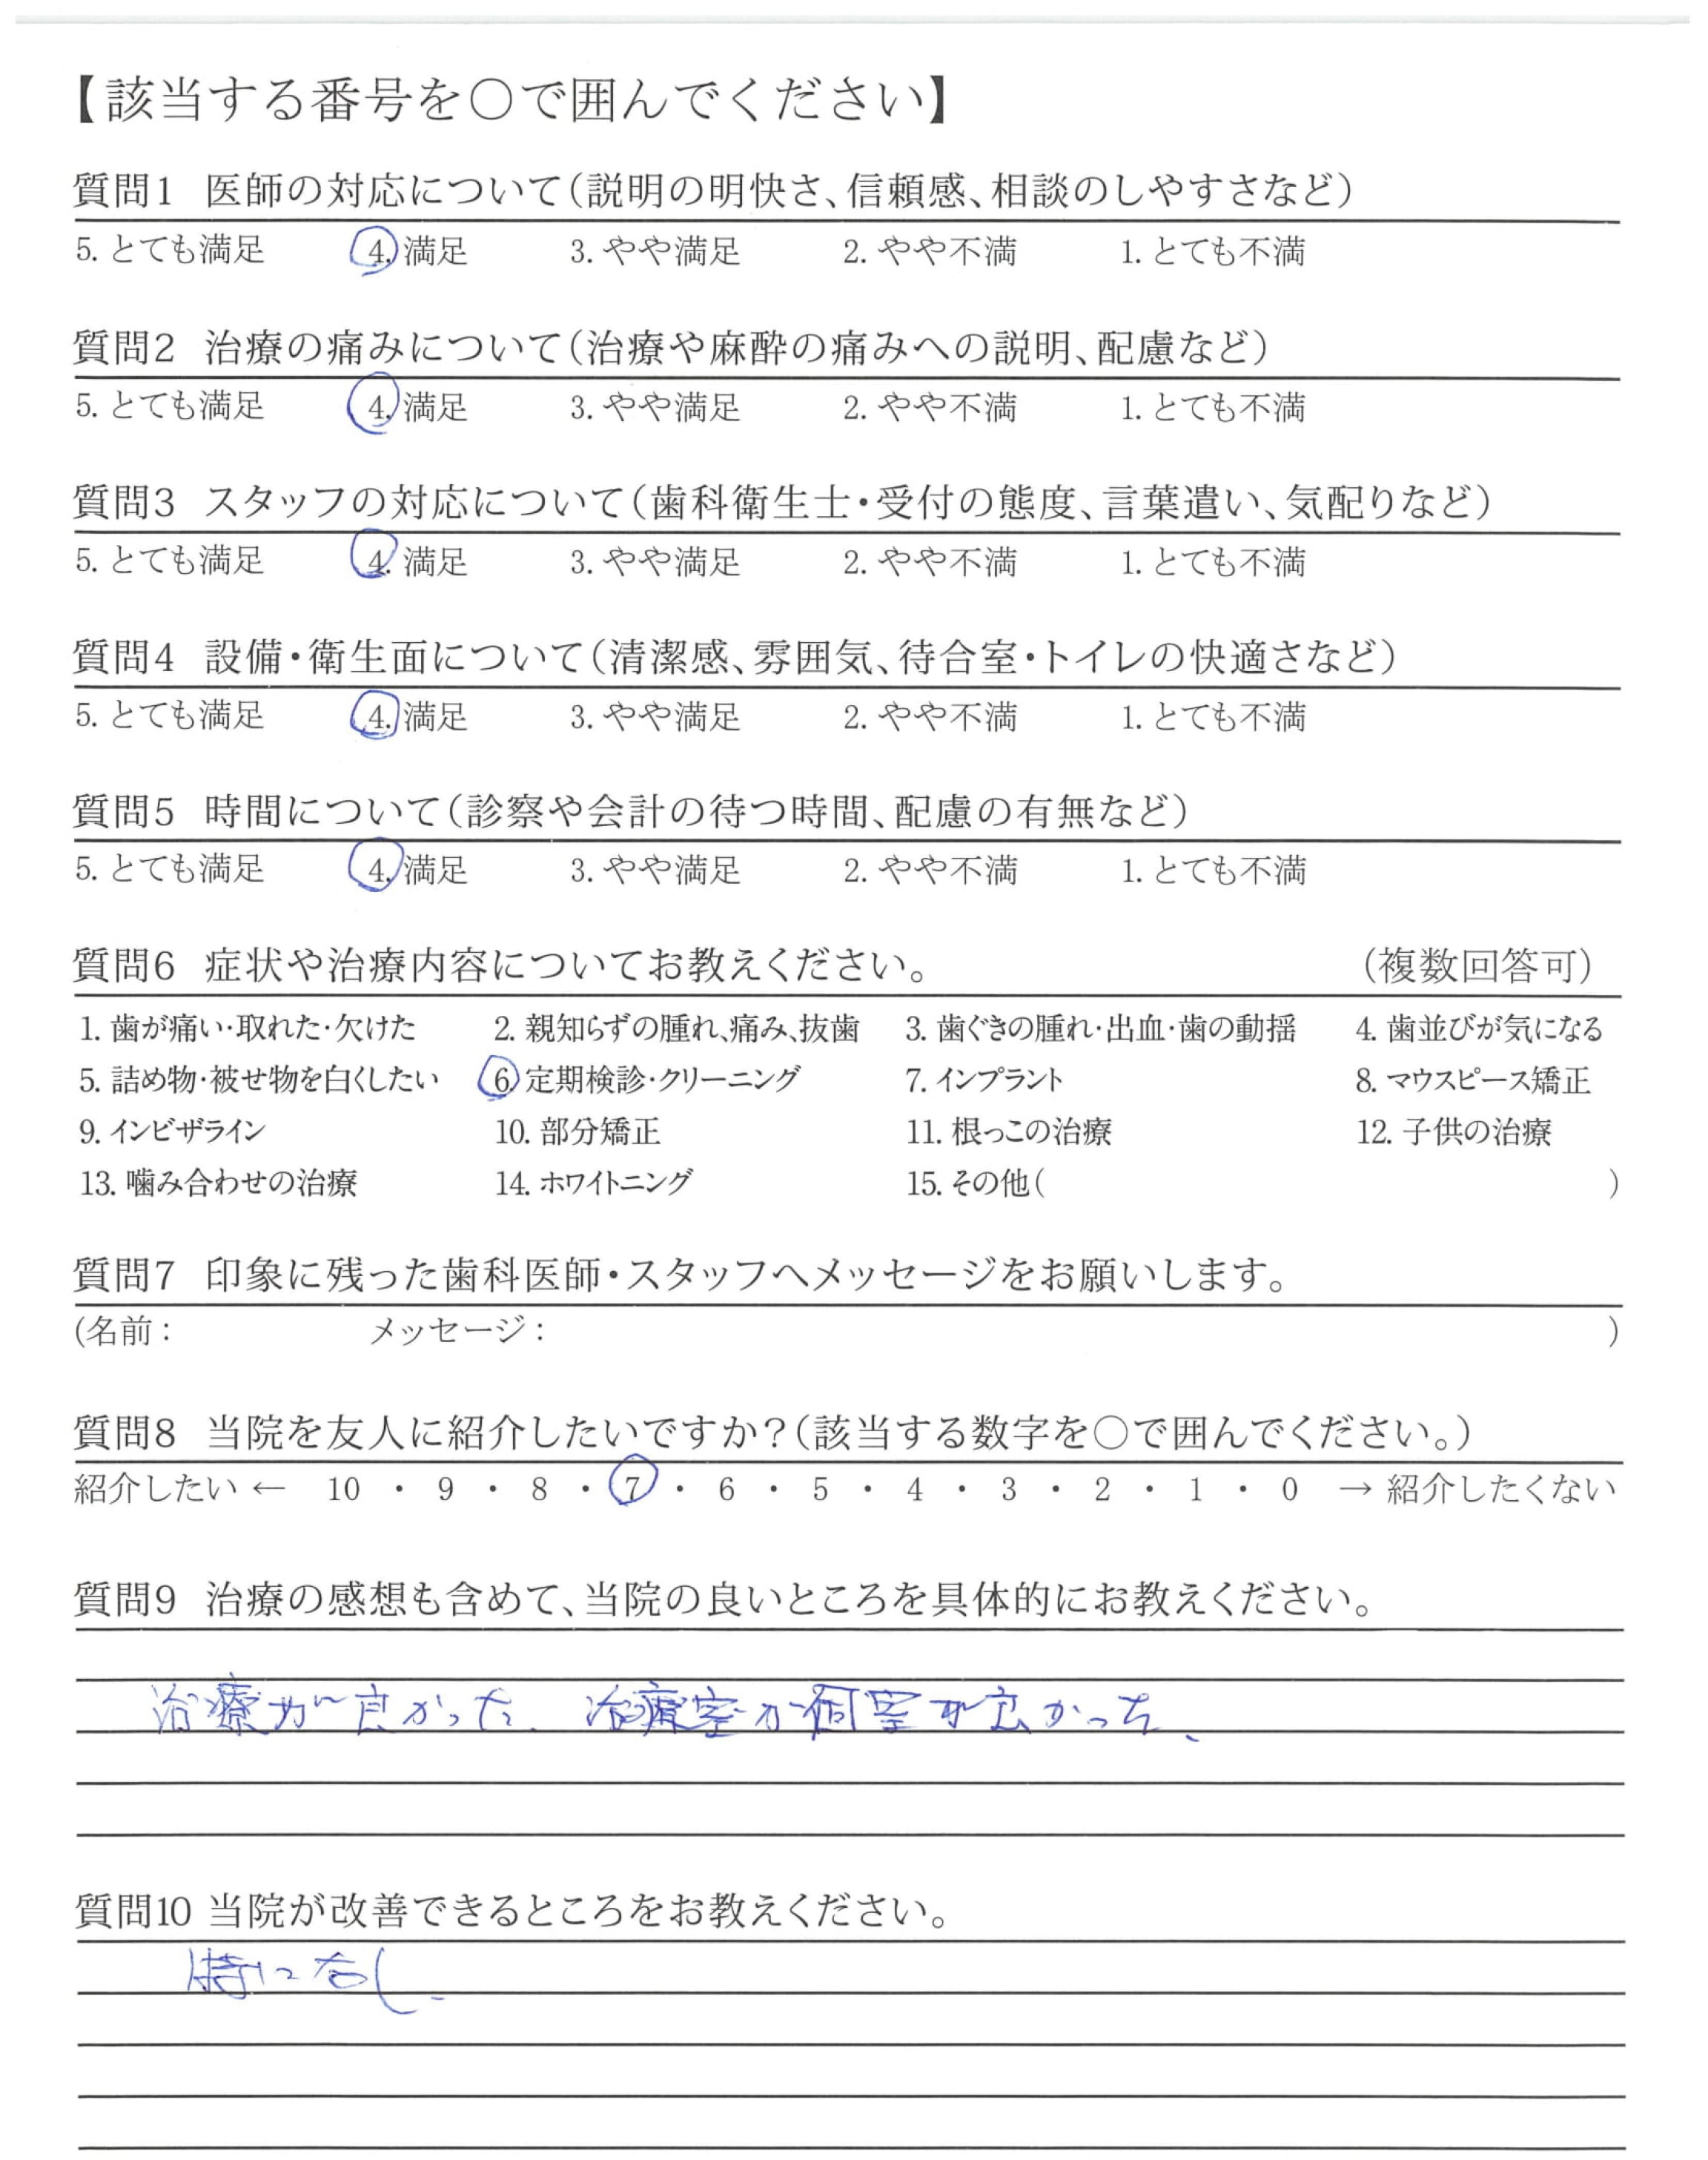 【該当する番号を○で囲んでください】
質問1 医師の対応について（説明の明快さ、信頼感、相談のしやすさなど）
5. とても満足 4. 満足 3. やや満足 2. やや不満 1. とても不満
質問2 治療の痛みについて（治療や麻酔の痛みへの説明、配慮など）
5. とても満足 4. 満足 3. やや満足 2. やや不満 1. とても不満
質問3 スタッフの対応について（歯科衛生士・受付の態度、言葉遣い、気配りなど）
5. とても満足 4. 満足 3. やや満足 2. やや不満 1. とても不満
質問4 設備・衛生面について（清潔感、雰囲気、待合室・トイレの快適さなど）
5. とても満足 4. 満足 3. やや満足 2. やや不満 1. とても不満
質問5 時間について（診察や会計の待つ時間、配慮の有無など）
5. とても満足 4. 満足 3. やや満足 2. やや不満 1. とても不満
質問6 症状や治療内容についてお教えください。 （複数回答可）
1. 歯が痛い・取れた・欠けた 2. 親知らずの腫れ、痛み、抜歯 3. 歯ぐきの腫れ・出血・歯の動揺 4. 歯並びが気になる
5. 詰め物・被せ物を白くしたい 6. 定期検診・クリーニング 7. インプラント 8. マウスピース矯正
9. インビザライン 10. 部分矯正 11. 根っこの治療 12. 子供の治療
13. 噛み合わせの治療 14. ホワイトニング 15. その他（ ）
質問7 印象に残った歯科医師・スタッフへメッセージをお願いします。
(名前： メッセージ： )
質問8 当院を友人に紹介したいですか？（該当する数字を○で囲んでください。）
紹介したい ← 10 ・ 9 ・ 8 ・ 7 ・ 6 ・ 5 ・ 4 ・ 3 ・ 2 ・ 1 ・ 0 → 紹介したくない
質問9 治療の感想も含めて、当院の良いところを具体的にお教えください。
治療が良かった、治療室が個室が良かった、
質問10 当院が改善できるところをお教えください。
特になし、